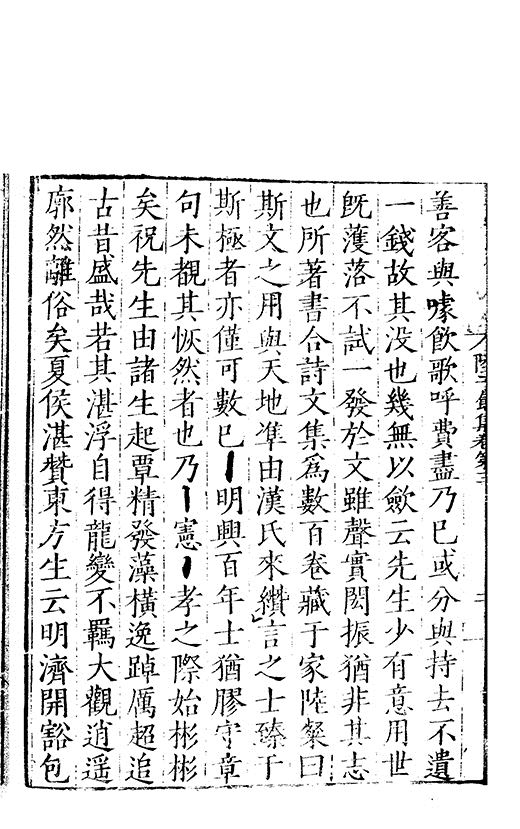 善客與噱飲歌呼費盡乃已或分與持去不遺
一錢故其没也幾無以斂云先生少有意用世
旣濩落不試一發於文雖聲實閎振猶非其志
也所著書合詩文集爲數百卷藏于家陸粲曰
斯文之用與天地凖由漢氏來纘言之士臻于
斯極者亦僅可數已明興百年士猶膠守章
句未覩其恢然者也乃憲孝之際始彬彬
矣祝先生由諸生起覃精發藻橫逸踔厲超追
古昔盛哉若其湛浮自得龍變不羈大觀逍遥
廓然離俗矣夏侯湛贊東方生云明濟開豁包